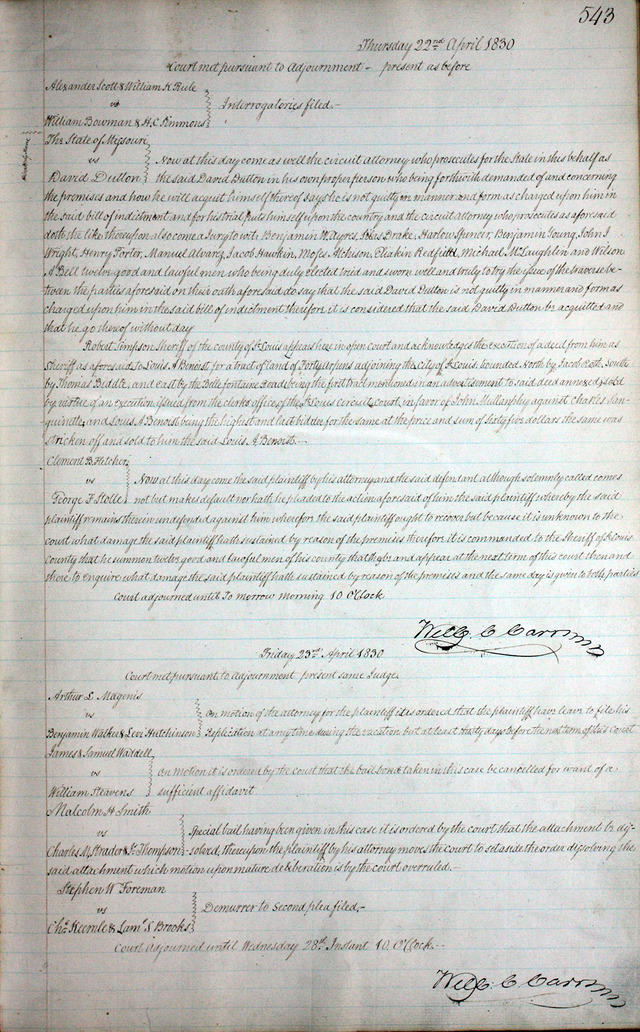 543
Thursday 22nd April 1830
Court met pursuant to Adjournment - present as before
Alexander Scott & William K Rule
vs
Interrogatories filed.-
William Bowman & H.C. Simmons
The State of Missouri
vs
Now at this day come as well the circuit attorney who prosecutes for the State in this behalf as
David Dutton
the said David Dutton in his own proper person who being forthwith demanded of and concerning
the premises and how he will acquit himself thereof says he is not guilty in manner and form as charged upon him in
the said bill of indictment and for his trial puts himself upon the country and the circuit attorney who prosecutes as aforesaid
doth the like thereupon also come a Jury to wit: Benjamin W. Ayres, Drake, Harlow Spencer, Benjamin Young, John J
Wright, Henry Foster, Manuel Alvarez, Jacob Hawkin, Moses, Eliakin Redfield, Michael McLaughlin and Wilson
A Bell twelve good and lawful men who being duly elected tried and sworn well and truly to try the issue of the traverse be-
tween the parties aforesaid on their oath aforesaid do say that the said David Dutton is not guilty in manner and form as
charged upon him in the said bill of indictment therefore it is considered that the said David Dutton be acquitted and
that he go thereof without day
Robert Simpson Sheriff of the county of St Louis appears here in open Court and acknowledges the execution of a deed from him as
Sheriff as aforesaid to Louis A Benoist for a tract of land of Forty arpens adjoining the City of St Louis bounded North by Jacob, South
by Thomas Biddle, and east by the Bellefontaine Road being the first tract mentioned in an advertisement to said deed annexed sold
by virtue of an execution issued from the clerks office of the St Louis circuit court, in favor of John Mullanphy against Charles San-
guinette, and Louis A Benoist being the highest and last bidder for the same at the price and sum of sixty five dollars the same was
stricken off and sold to him the said Louis A. Benoist.-
Clement B Fletcher
vs
Now at this day come the said plaintiff by his attorney and the said defendant although solemnly called comes
George F Stolle
not but makes default nor hath he pleaded to the action aforesaid of him the said plaintiff whereby the said
plaintiff remains therein undefended against him wherefore the said plaintiff ought to recover but because it is unknown to the
court what damage the said plaintiff hath sustained by reason of the premises therefore it is commanded to the Sheriff of St Louis
County that he summon twelve good and lawful men of his county that they be and appear at the next term of this court then and
there to enquire what damage the said plaintiff hath sustained by reason of the premises and the same day is given to both parties
Court adjourned until To morrow morning 10 O'Clock
Will C Carr
Friday 23rd April 1830
Court met pursuant to Adjournment present same Judge
Arthur L Magenis
vs
On motion of the attorney for the plaintiff it is ordered that the plaintiff have leave to file his
Benjamin Walker & Levi Hutchinson
Replication at any time during the vacation but at least thirty days before the next term of this Court
James & Samuel Waddell
vs
On motion it is ordered by the court that the bail bond taken in this case be cancelled for want of a
William Steavens
sufficient affidavit
Malcolm H Smith
vs
Special bail having been given in this case it is ordered by the court that the attachment be dis-
Charles M. Strader & Thompson
solved, thereupon the plaintiff by his attorney moves the court to set aside the order dissolving the
said attachment which motion upon mature deliberation is by the court overruled.-
Stephen W Foreman
vs
Demurrer to Second plea filed.-
Chs Keemle & Saml S Brooks
Court adjourned until Wednesday 28th Instant 10 O'Clock.-
Will C Carr